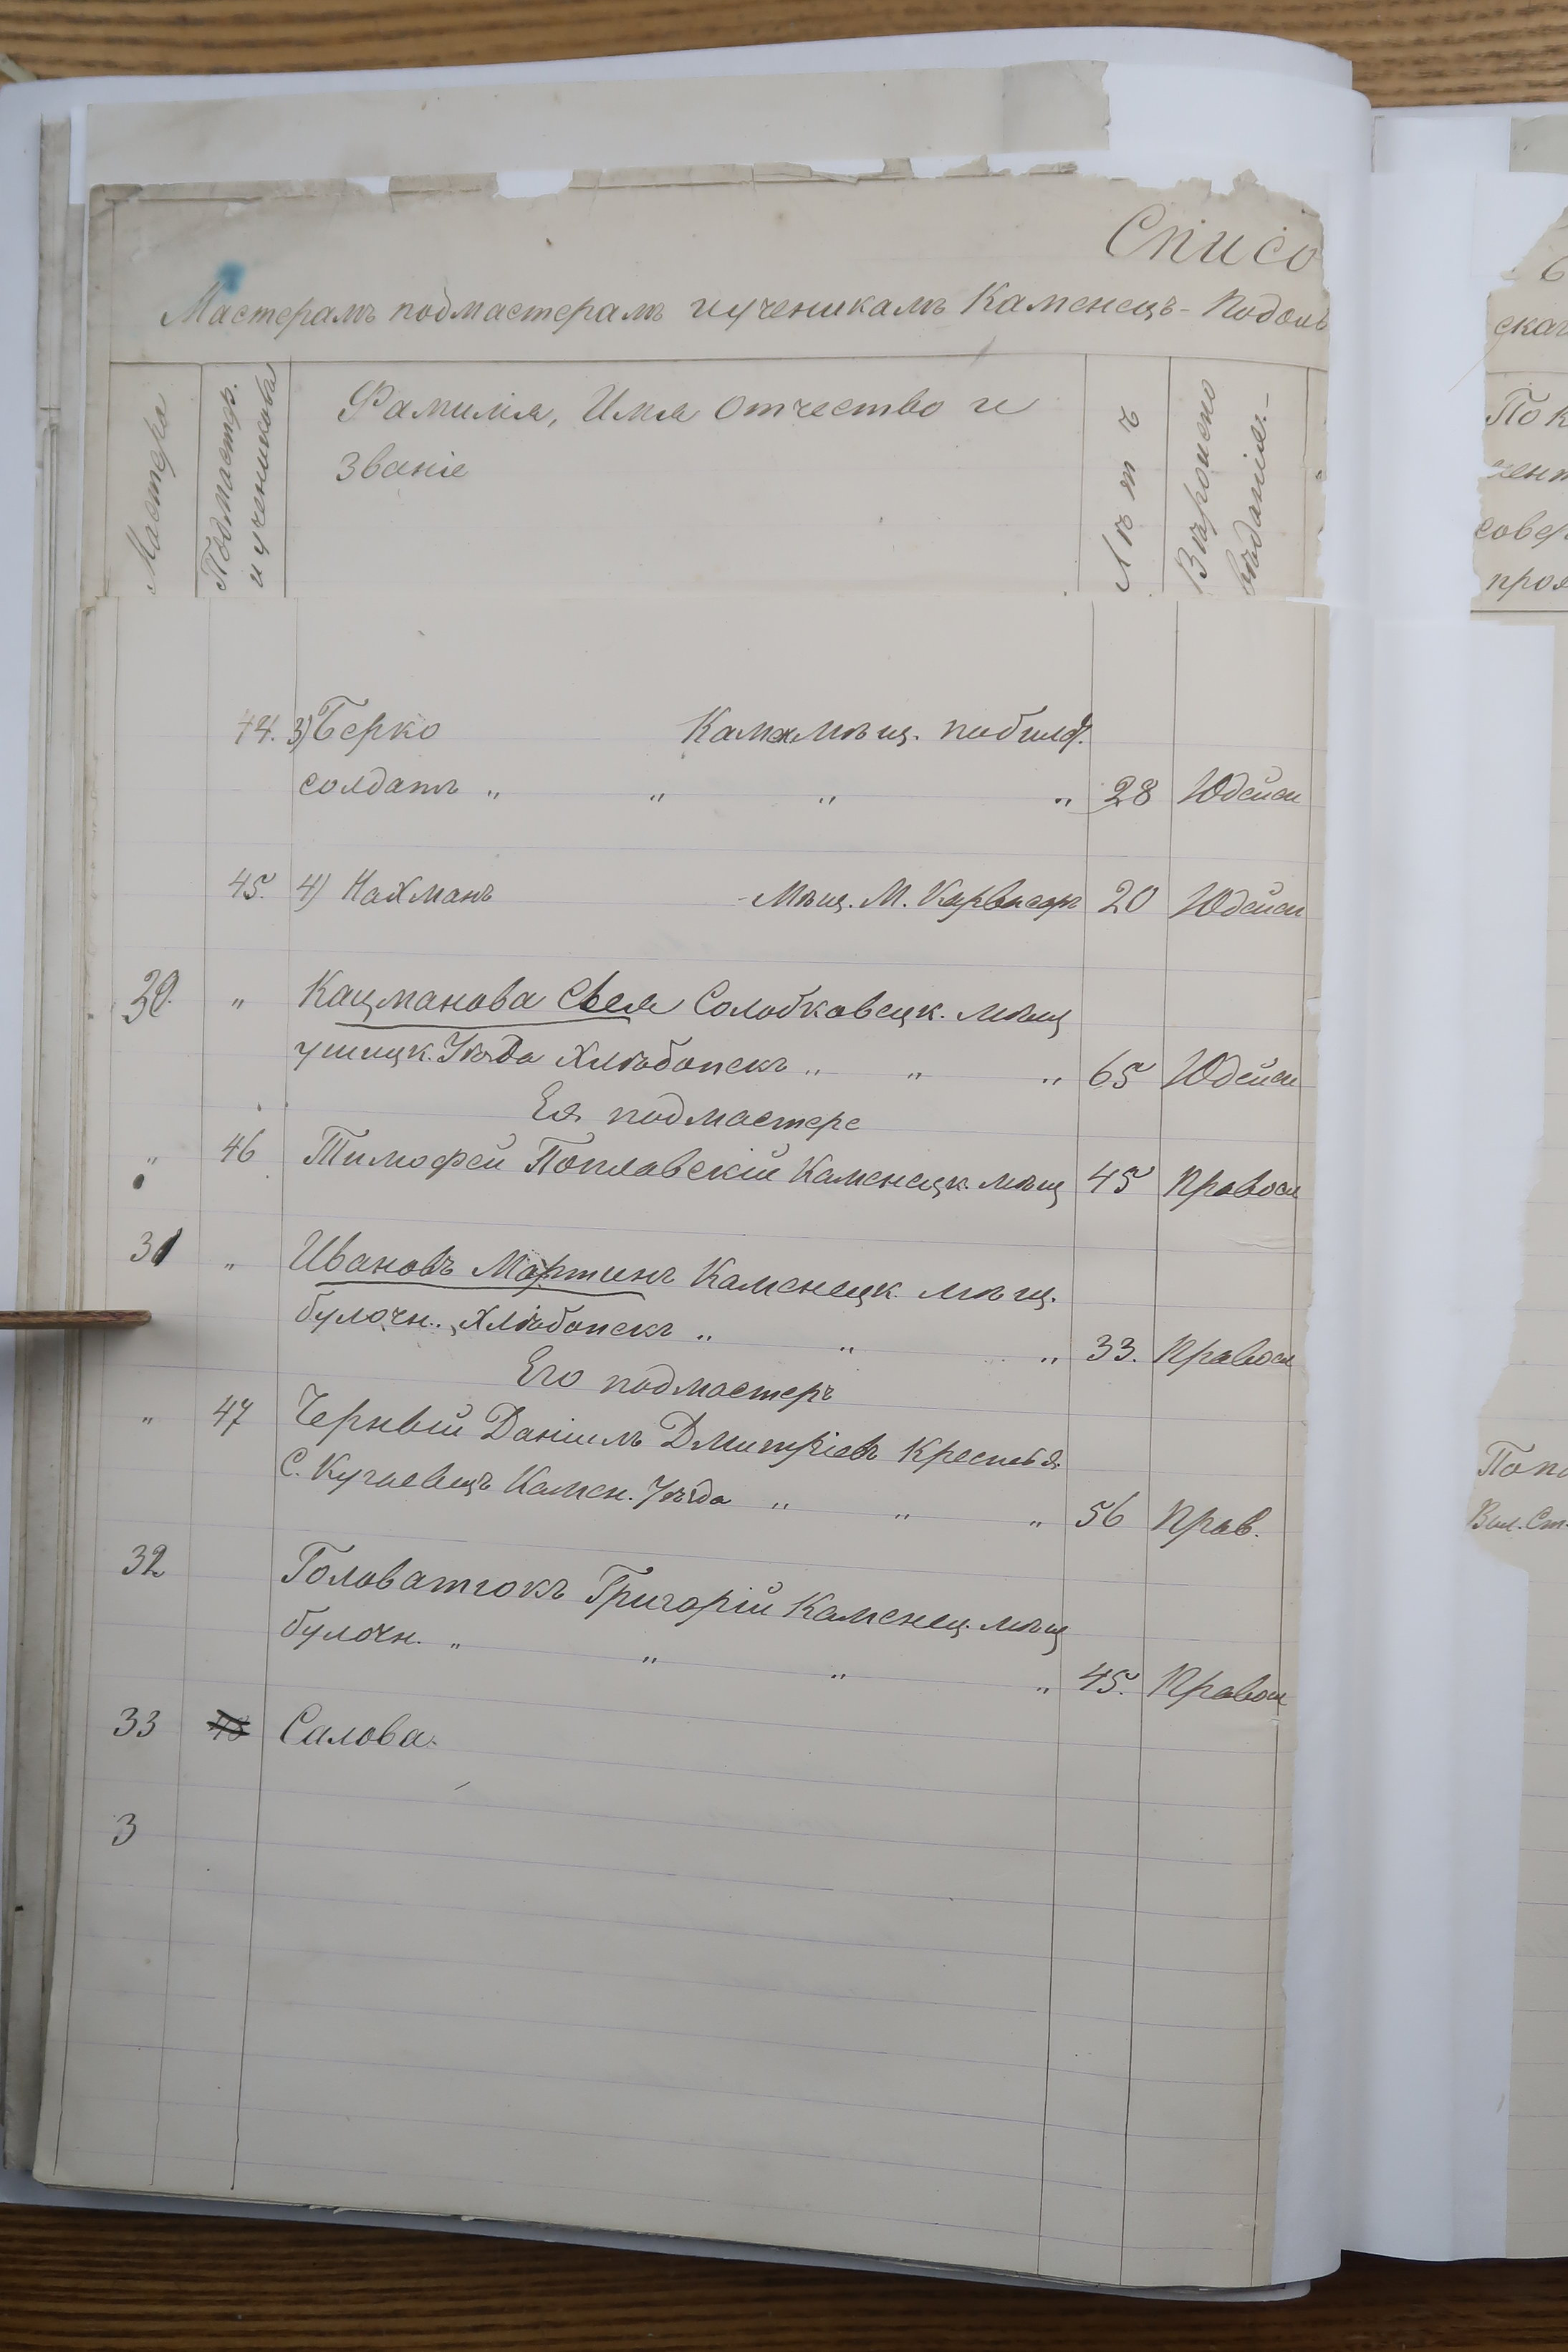 Списо
Мастерамъ подмастерамъ и ученикамъ Каменецъ-Подоль
Мастера
Подмастер.
и учениковъ
Фамилія, Имя Отчество и
Званіе
Лѣтъ
44. 3) Берко мѣщ. по билл.
солдатъ „ „ „ „ 28 Юдейск
45. 4) Нахманъ Мѣщ. М. 20 Юдейск
30. „ Кацманова Солобковецк. мѣщ
ушицк. Уѣзда Хлѣбопекъ „ „ „ 65 Юдейск
Ея подмастере
„ 46 Тимофей Поплавскій Каменецк. мѣщ 45 Православ
31 „ Ивановъ Мартинъ Каменецк. мѣщ.
булочн. Хлѣбопекъ „ „ „ 33. Православ
Его подмастеръ
„ 47 Черный Даніилъ Дмитріевъ Крестья.
С. Кучаевецъ Камен. Уѣзда „ „ „ 56 Прав.
32 Головатюкъ Григорій Каменец. мѣщ
булочн. „ „ „ „ 45. Правос
33 Салова.
3
скаг
По к
сове
проя
Вол. Ст.